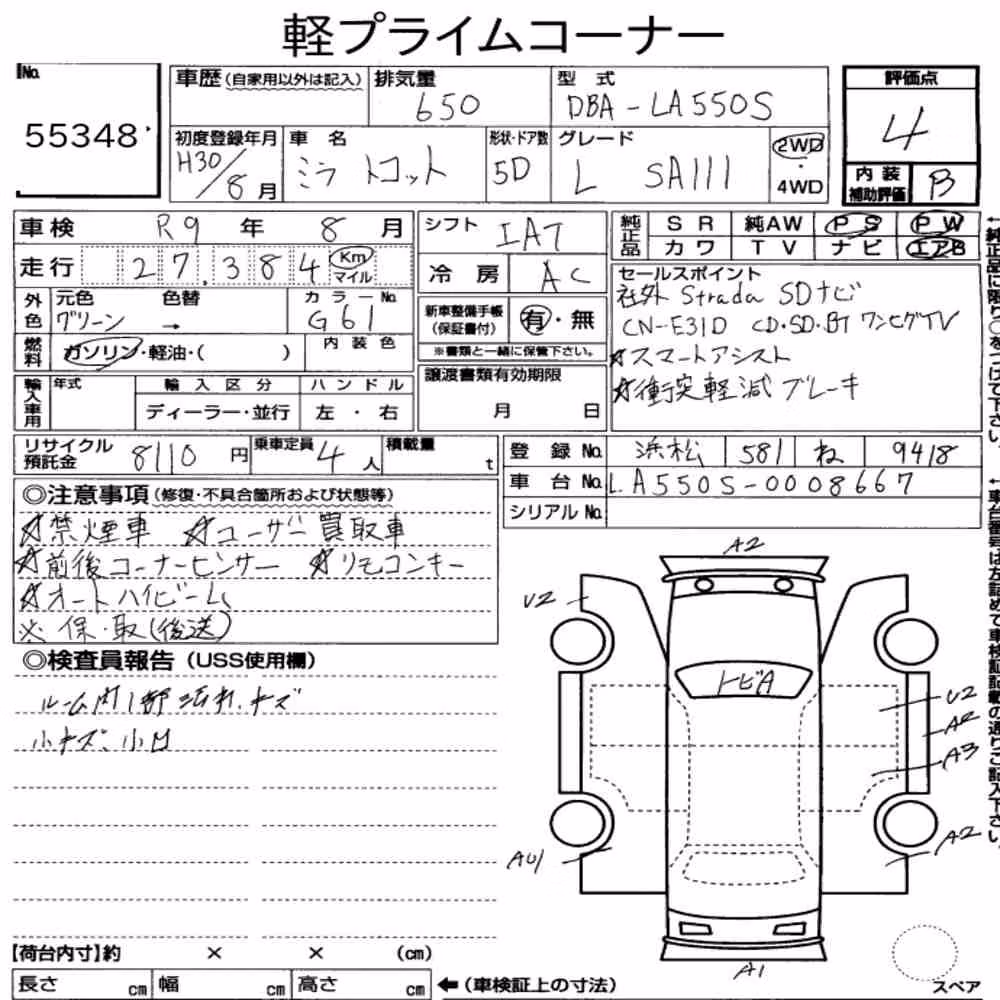 軽プライムコーナー
No.
55348
車歴(自家用以外は記入)
排気量
650
型 式
DBA-LA550S
評価点
4
内装
補助評価
B
初度登録年月
H30/8月
車 名
ミラ トコット
形状・ドア数
5D
グレード
L SAIII
2WD
・
4WD
車検 R9 年 8 月
走行 27,384 Km
マイル
シフト IAT
冷房 AC
純正品
SR 純AW PS PW
カワ TV ナビ エアB
外色
元色 色替
グリーン →
カラーNo.
G61
燃料
ガソリン・軽油・( )
内装色
新車整備手帳
(保証書付)
有・無
※書類と一緒に保管下さい。
セールスポイント
社外 Strada SDナビ
CN-E31D CD・SD・BT ワンセグTV
☆スマートアシスト
☆衝突軽減ブレーキ
輸入車用
年式
輸入区分
ディーラー・並行
ハンドル
左・右
譲渡書類有効期限
月 日
リサイクル
預託金
8110 円
乗車定員 4 人
積載量
t
登録No. 浜松 581 ね 9418
車台No. LA550S-0008667
シリアルNo.
◎注意事項(修復・不具合箇所および状態等)
☆禁煙車 ☆ユーザー買取車
☆前後コーナーセンサー ☆リモコンキー
☆オートハイビーム
※保・取(後送)
◎検査員報告(USS使用欄)
ルーム内1部汚れ、キズ
小キズ、小凹
A2
U2
トビA
U2
A2
A3
A2
AU1
A1
スペア
【荷台内寸】約 × × (cm)
長さ cm 幅 cm 高さ cm
←(車検証上の寸法)
←純正品に限り○をつけて下さい。
←車台番号は左詰めで車検証記載の通りご記入下さい。